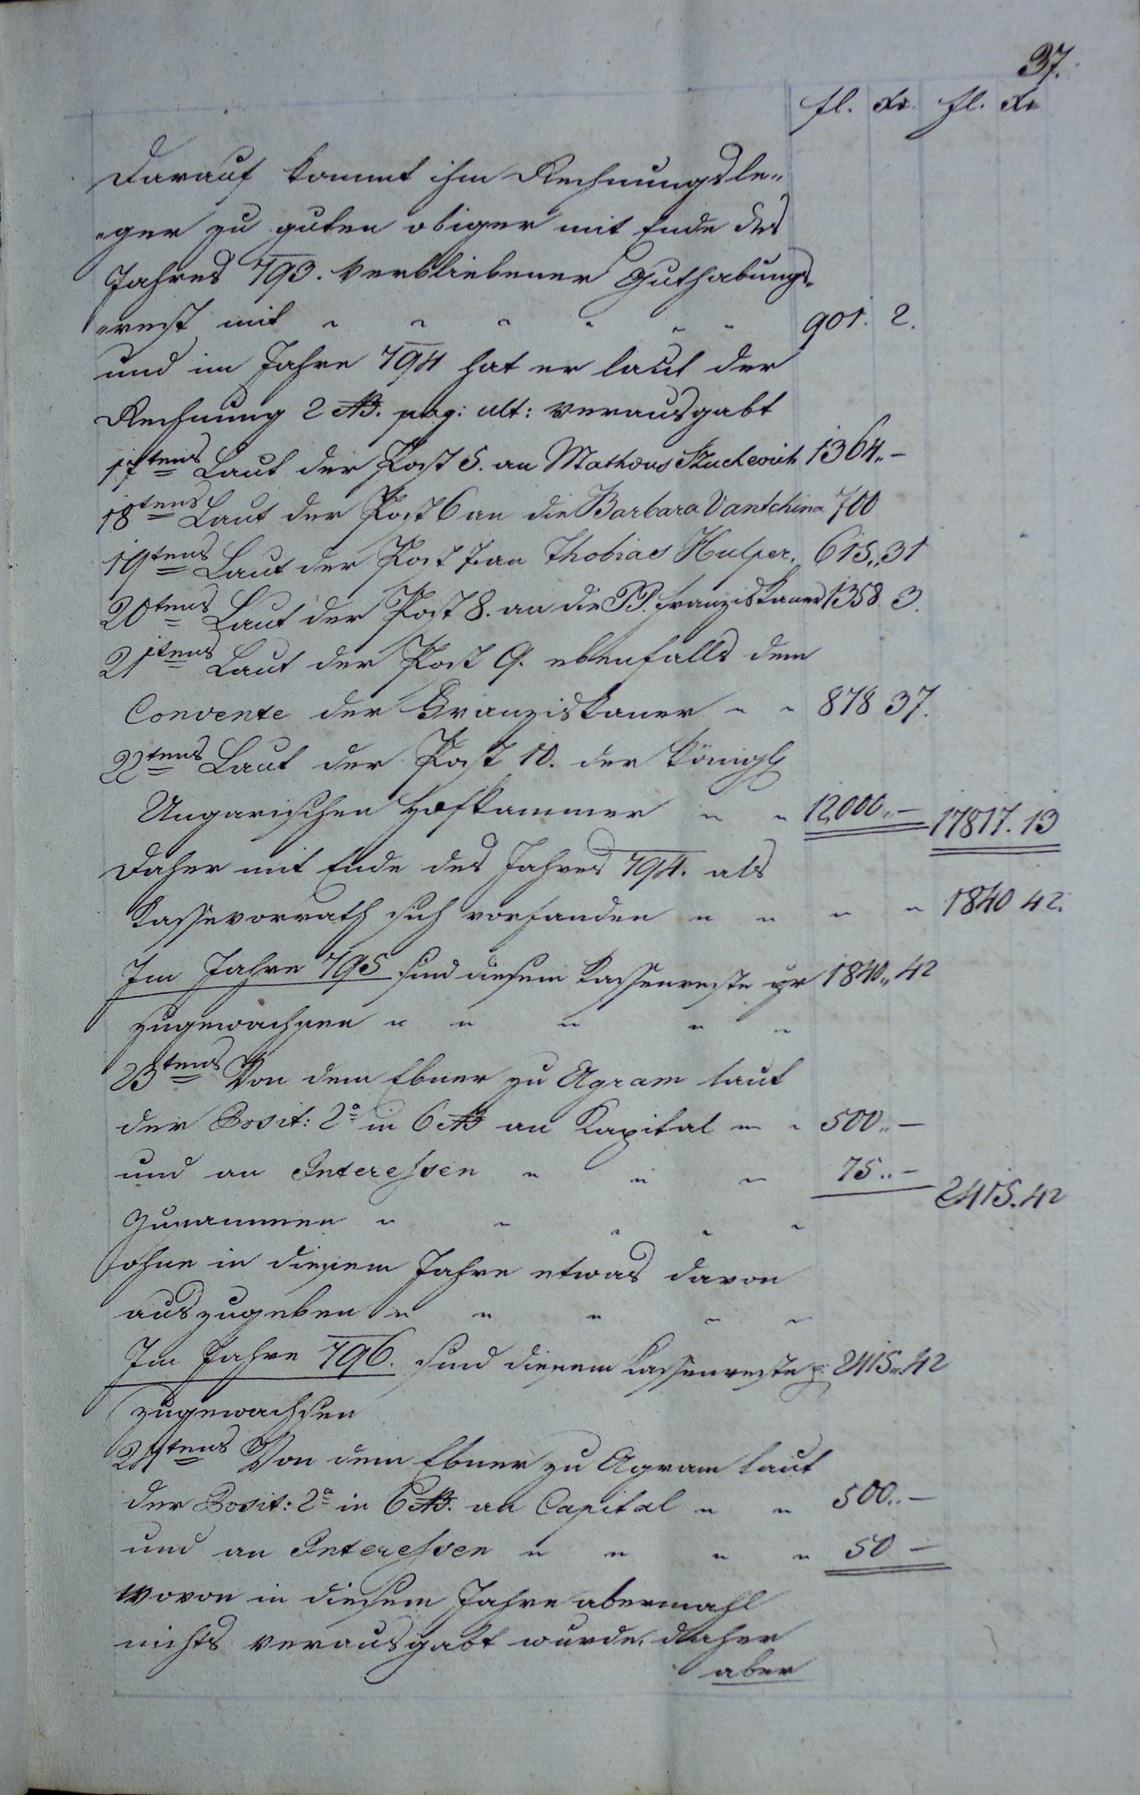 37.
fl. Xr. fl. Xr
Darauf kommt ihm Rechnungsle„
„ger zu guten obiger mit Ende des
Jahres 793. verbliebener Guthabungs„
„rest mit „ „ „ „ „ „ 901. 2.
und im Jahre 794 hat er laut der
Rechnung 2 pag: ult: verausgabt
17tens Laut der Post 5. an Mathæus 1364„ –
18tens Laut der Post 6 an die Barbara Vantchina 700
19tens Laut der Post 7 an Thobias Hulper. 615„ 31
20tens Laut der Post 8. an die PP. Franziskaner 1358 3.
21tens Laut der Post 9. ebenfalls dem
Convente der Franziskaner „ „ 878 37.
22tens Laut der Post 10. der königl
Ungarischen Hofkammer „ „ 12000„ – 17817. 13
Daher mit Ende des Jahres 794. als
Kassevorrath sich vorfanden „ „ „ „ 1840 42.
Im Jahre 795 sind diesem Kassenreste pr 1840„ 42
zugewachsen „ „ „ „ „
23tens Von dem Ebner zu Agram laut
der Posit: 2a in 6 an Kapital „ „ 500„ –
und an Interessen „ „ „ 75„ –
Zusammen „ „ „ „ „ 2415. 42
ohne in diesem Jahre etwas davon
auszugeben „ „ „ „ „
Im Jahre 796. sind diesem Kassenreste p: 2415„ 42
zugewachsen
24tens Von dem Ebner zu Agram laut
der Posit: 2a in 6 an Capital „ „ 500„ –
und an Interessen „ „ „ „ 50 –
wovon in diesem Jahre abermahl
nichts verausgabt wurde, daher
aber